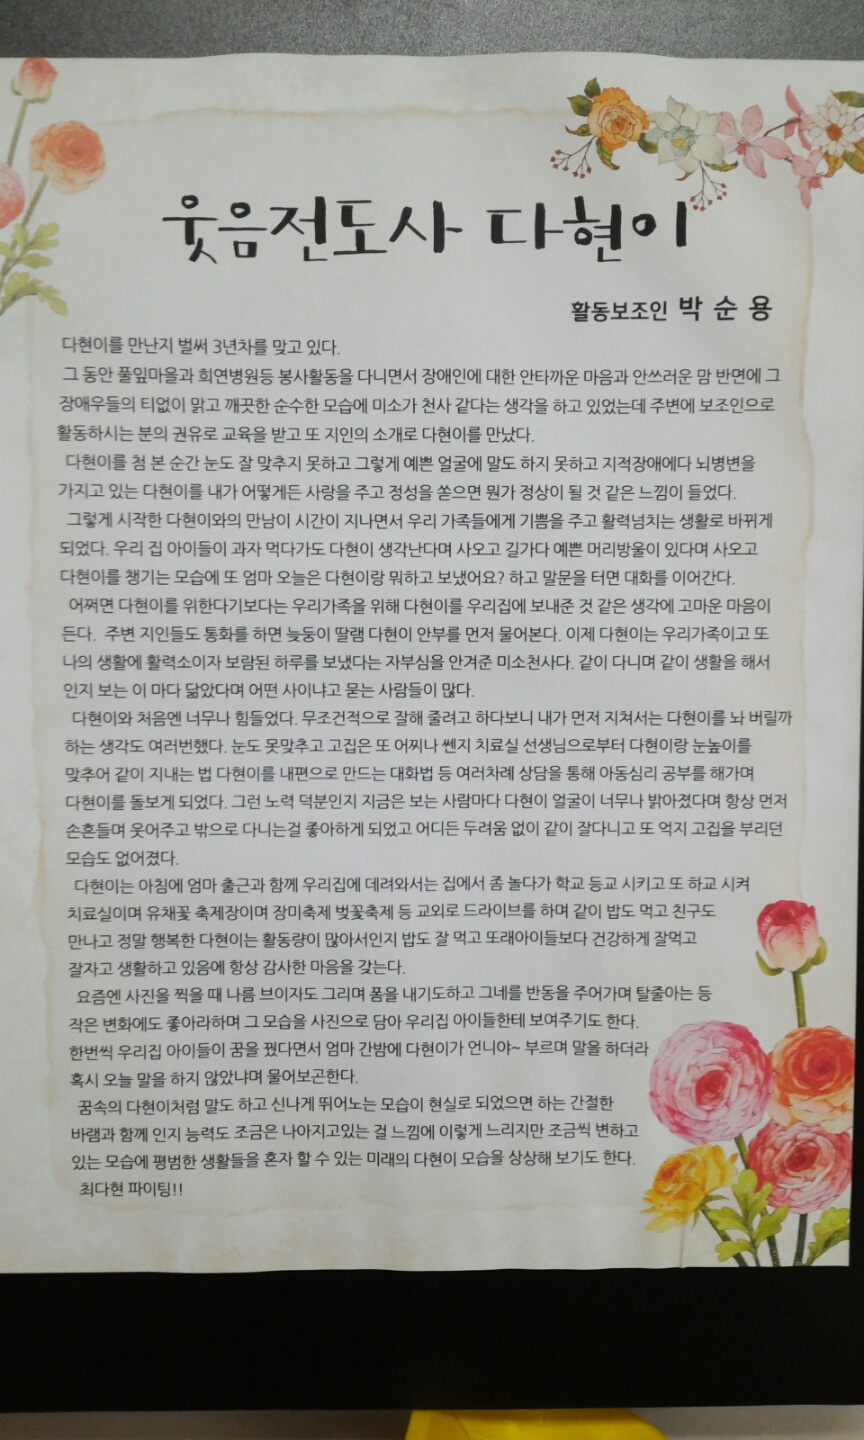 웃음전도사 다현이
활동보조인 박 순 용
다현이를 만난지 벌써 3년차를 맞고 있다.
그 동안 풀잎마을과 희연병원등 봉사활동을 다니면서 장애인에 대한 안타까운 마음과 안쓰러운 맘 반면에 그
장애우들의 티없이 맑고 깨끗한 순수한 모습에 미소가 천사 같다는 생각을 하고 있었는데 주변에 보조인으로
활동하시는 분의 권유로 교육을 받고 또 지인의 소개로 다현이를 만났다.
다현이를 첨 본 순간 눈도 잘 맞추지 못하고 그렇게 예쁜 얼굴에 말도 하지 못하고 지적장애에다 뇌병변을
가지고 있는 다현이를 내가 어떻게든 사랑을 주고 정성을 쏟으면 뭔가 정상이 될 것 같은 느낌이 들었다.
그렇게 시작한 다현이와의 만남이 시간이 지나면서 우리 가족들에게 기쁨을 주고 활력넘치는 생활로 바뀌게
되었다. 우리 집 아이들이 과자 먹다가도 다현이 생각난다며 사오고 길가다 예쁜 머리방울이 있다며 사오고
다현이를 챙기는 모습에 또 엄마 오늘은 다현이랑 뭐하고 보냈어요? 하고 말문을 터면 대화를 이어간다.
어쩌면 다현이를 위한다기보다는 우리가족을 위해 다현이를 우리집에 보내준 것 같은 생각에 고마운 마음이
든다. 주변 지인들도 통화를 하면 늦둥이 딸램 다현이 안부를 먼저 물어본다. 이제 다현이는 우리가족이고 또
나의 생활에 활력소이자 보람된 하루를 보냈다는 자부심을 안겨준 미소천사다. 같이 다니며 같이 생활을 해서
인지 보는 이 마다 닮았다며 어떤 사이냐고 묻는 사람들이 많다.
다현이와 처음엔 너무나 힘들었다. 무조건적으로 잘해 줄려고 하다보니 내가 먼저 지쳐서는 다현이를 놔 버릴까
하는 생각도 여러번했다. 눈도 못맞추고 고집은 또 어찌나 쎈지 치료실 선생님으로부터 다현이랑 눈높이를
맞추어 같이 지내는 법 다현이를 내편으로 만드는 대화법 등 여러차례 상담을 통해 아동심리 공부를 해가며
다현이를 돌보게 되었다. 그런 노력 덕분인지 지금은 보는 사람마다 다현이 얼굴이 너무나 밝아졌다며 항상 먼저
손흔들며 웃어주고 밖으로 다니는걸 좋아하게 되었고 어디든 두려움 없이 같이 잘다니고 또 억지 고집을 부리던
모습도 없어졌다.
다현이는 아침에 엄마 출근과 함께 우리집에 데려와서는 집에서 좀 놀다가 학교 등교 시키고 또 하교 시켜
치료실이며 유채꽃 축제장이며 장미축제 벚꽃축제 등 교외로 드라이브를 하며 같이 밥도 먹고 친구도
만나고 정말 행복한 다현이는 활동량이 많아서인지 밥도 잘 먹고 또래아이들보다 건강하게 잘먹고
잘자고 생활하고 있음에 항상 감사한 마음을 갖는다.
요즘엔 사진을 찍을 때 나름 브이자도 그리며 폼을 내기도하고 그네를 반동을 주어가며 탈줄아는 등
작은 변화에도 좋아라하며 그 모습을 사진으로 담아 우리집 아이들한테 보여주기도 한다.
한번씩 우리집 아이들이 꿈을 꿨다면서 엄마 간밤에 다현이가 언니야~ 부르며 말을 하더라
혹시 오늘 말을 하지 않았냐며 물어보곤한다.
꿈속의 다현이처럼 말도 하고 신나게 뛰어노는 모습이 현실로 되었으면 하는 간절한
바램과 함께 인지 능력도 조금은 나아지고있는 걸 느낌에 이렇게 느리지만 조금씩 변하고
있는 모습에 평범한 생활들을 혼자 할 수 있는 미래의 다현이 모습을 상상해 보기도 한다.
최다현 파이팅!!